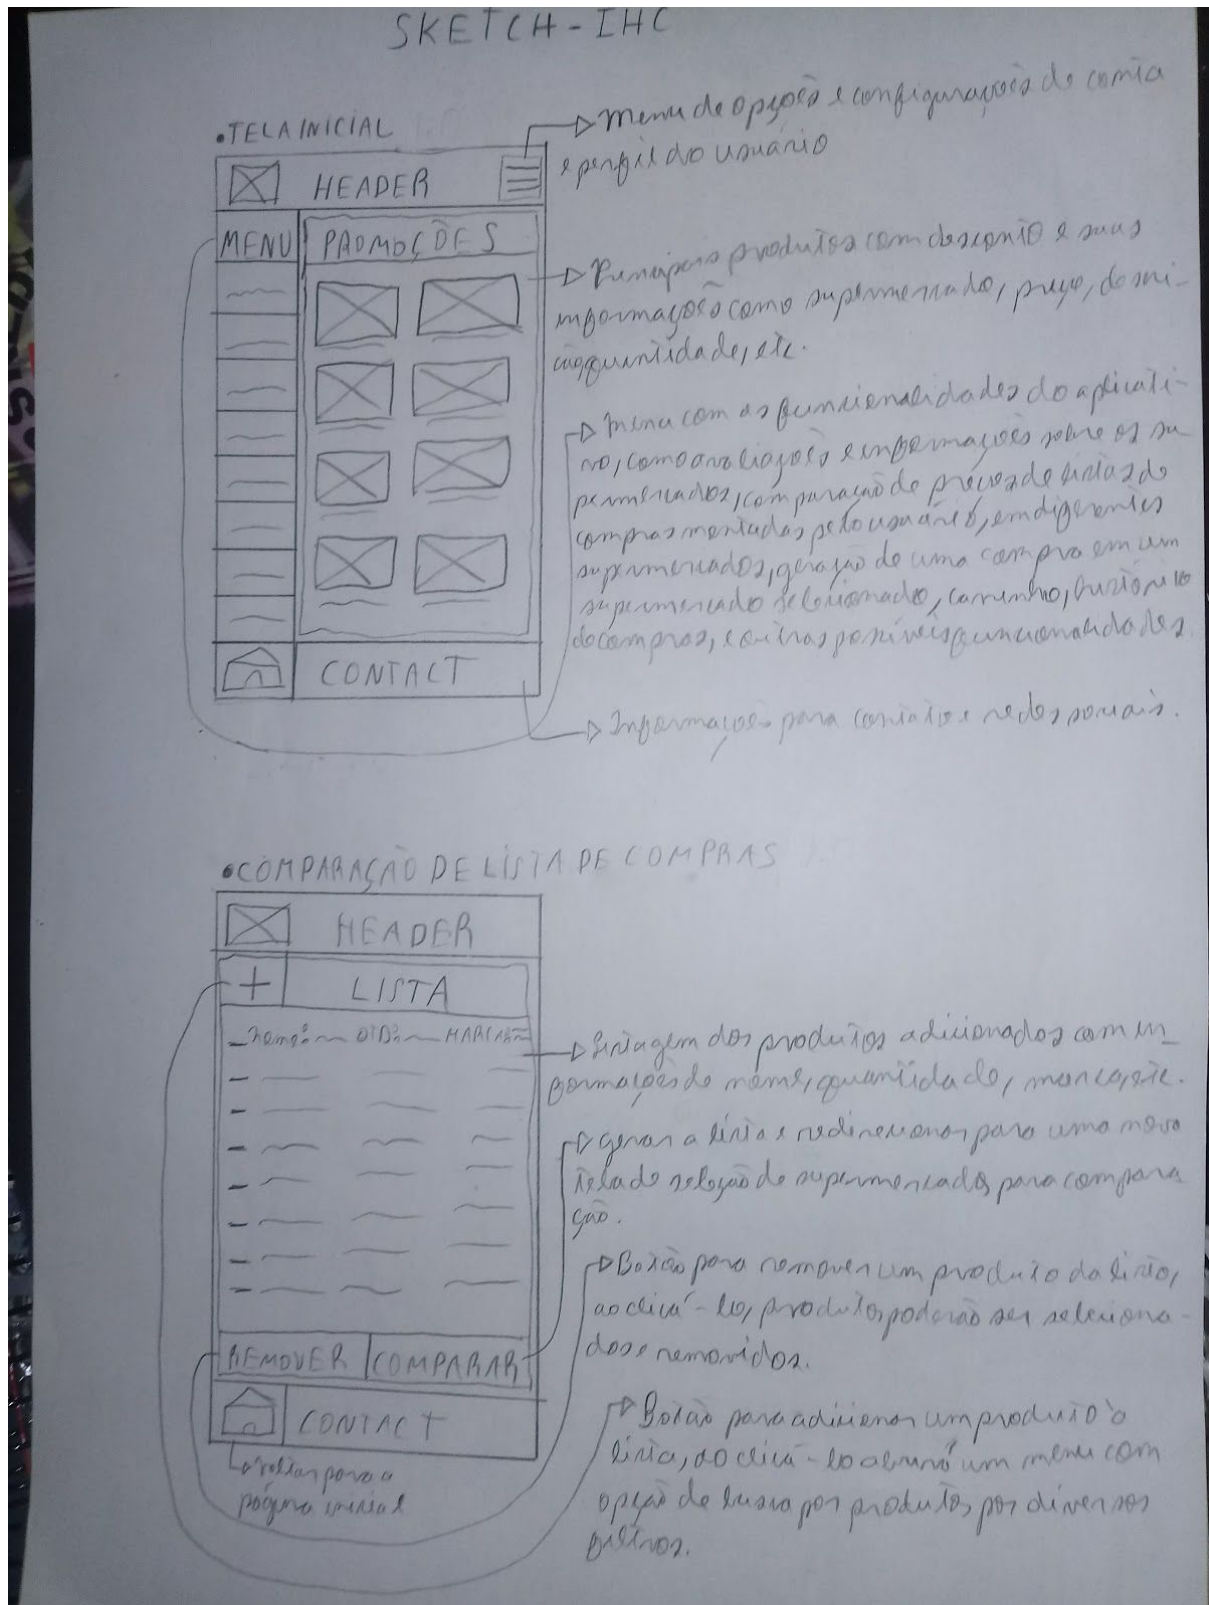 SKETCH-IHC
•TELA INICIAL
Menu de opções e configurações de conta
e perfil do usuário
HEADER
MENU
PROMOÇÕES
Principais produtos com desconto e suas
informações como supermercado, preço, descri-
ção, quantidade, etc.
Menu com as funcionalidades do aplicati-
vo, como avaliações e informações sobre os su-
permercados, comparação de preços de listas de
compras montadas pelo usuário, em diferentes
supermercados, geração de uma compra em um
supermercado selecionado, carrinho, histórico
de compras, e outras possíveis funcionalidades.
CONTACT
Informações para contato e redes sociais.
•COMPARAÇÃO DE LISTA DE COMPRAS
HEADER
+ LISTA
Nome: QTD: MARCA:
Listagem dos produtos adicionados com in-
formações de nome, quantidade, marca, etc.
Gerar a lista e redirecionar para uma nova
tela de seleção de supermercados para compara
ção.
Botão para remover um produto da lista,
ao clicá-lo, produtos poderão ser seleciona-
dos e removidos.
REMOVER COMPARAR
CONTACT
voltar para a
página inicial
Botão para adicionar um produto à
lista, ao clicá-lo abrirá um menu com
opção de busca por produtos por diversos
filtros.